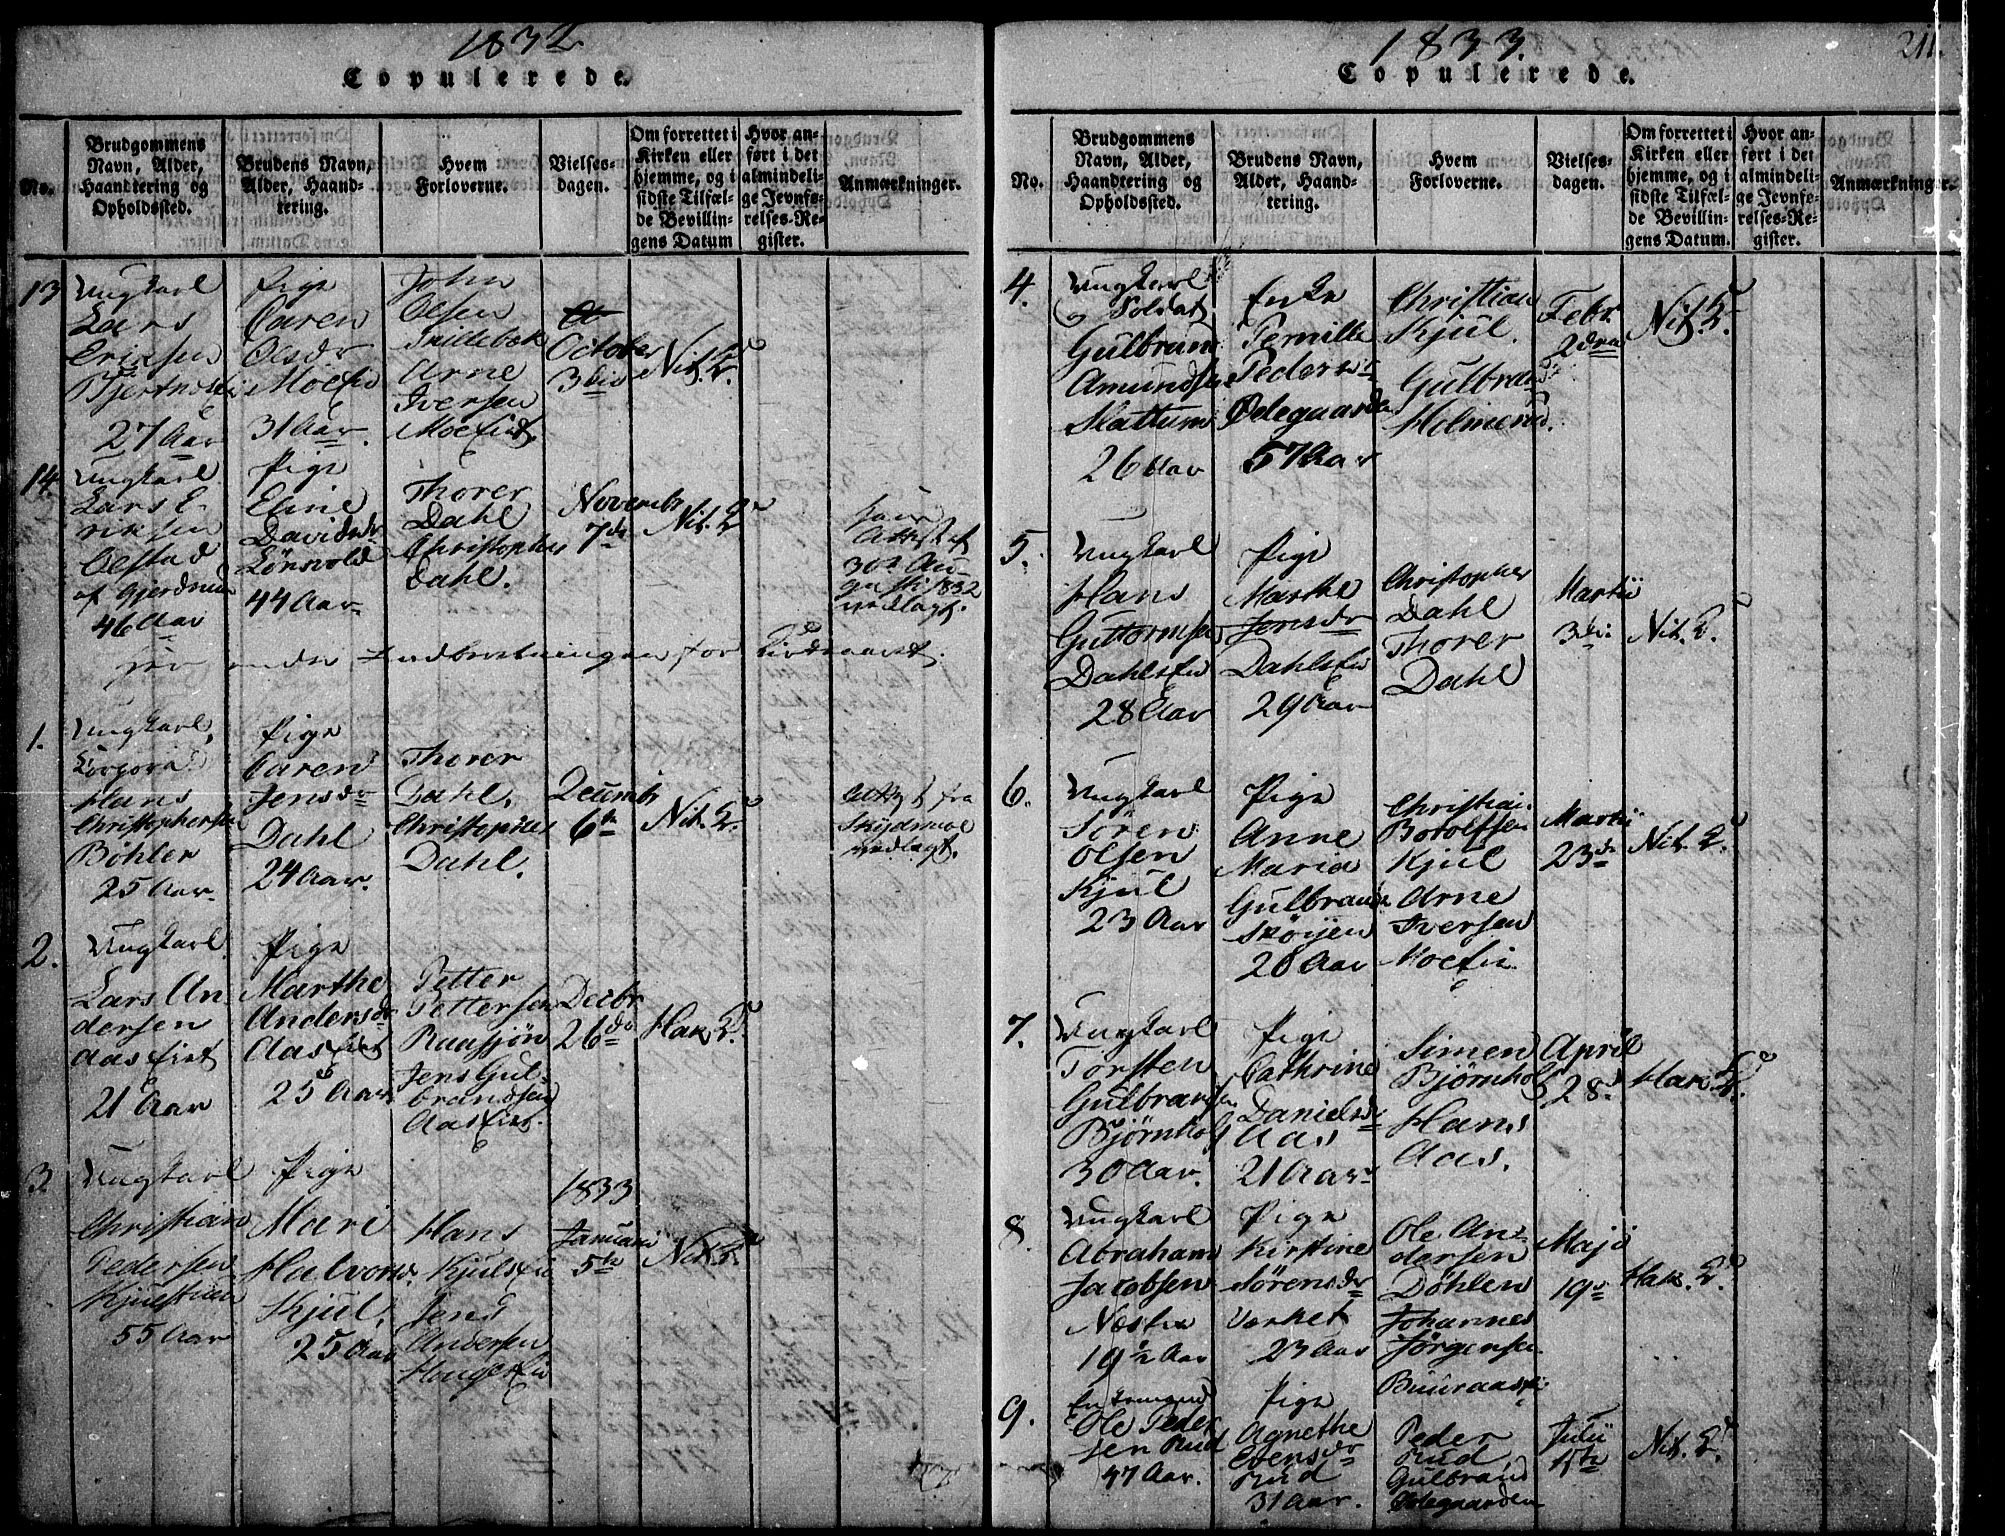 1832
Copulerede.
No.
Brudgommens
Navn, Alder,
Haandtering og
Opholdssted.
Brudens Navn,
Alder, Haand-
tering.
Hvem
Forloverne.
Vielses-
dagen.
Om forrettet i
Kirken eller
hjemme, og i
sidste Tilfæl-
de Bevillin-
gens Datum
Hvor an-
ført i det
almindeli-
ge Jevnfø-
relses-Re-
gister.
Anmærkninger.
13
Ungkarl
Lars
Erixsen
27 Aar
Pige
Caren
Olsdr
Moeeie
31 Aar.
John
Olsen
Trillebek
Arne
Iversen
Moeeiet.
October
3die
Nit. K.
14.
Ungkarl
Lars E-
riksen
Olstad
af Gjerdrum
46 Aar
Pige
Eline
Davidsdr
Lønvold
44 Aar
Thorer
Dahl
Christopher
Dahl.
Novembr
7de
Nit. K.
Attest af
30te Au-
gusti 1832
vedlagt.
1.
Ungkarl,
Hans
Christophersen
Bøhler
25 Aar
Pige
Caren
Jensdr
Dahl
24 Aar.
Thorer
Dahl,
Christopher
Dahl.
Decembr
6te
Nit. K.
Attest fra
Skijdsmoe
vedlagt.
2.
Ungkarl
Lars An-
dersen
Aaseiet
21 Aar
Pige
Marthe
Andersdr
Aaseiet
25 Aar
Petter
Pettersen
Raasjøn
Jens Gul-
brandsen
Aaseiet.
Decbr
26de
Hak. K.
3
Ungkarl
Christian
Pedersen
55 Aar
Pige
Mari
Halvorsd.
Kjul,
25 Aar
Hans
Kjulseie
Jens
Andersen
1833
Januari
5te
Nit. K.
1833.
211.
Copulerede.
No.
Brudgommens
Navn, Alder,
Haandtering og
Opholdssted.
Brudens Navn,
Alder, Haand-
tering.
Hvem
Forloverne.
Vielses-
dagen.
Om forrettet i
Kirken eller
hjemme, og i
sidste Tilfæl-
de Bevillin-
gens Datum.
Hvor an-
ført i det
almindeli-
ge Jevnfø-
relses-Re-
gister.
Anmærkninger.
4.
Ungkarl
og Soldat
Gulbrand
Amundsen
Slattum
26 Aar
Enke
Pernille
Pedersd.
Ødegaarden
57 Aar
Christian
Kjul.
Gulbrand
Holmerud.
Febr.
2den
Nit. K.
5.
Ungkarl
Hans
Guttormsen
Dahlseie
28 Aar
Pige
Marthe
Jensdr
Dahlseie
29 Aar
Christopher
Dahl
Thorer
Dahl
Martii
3die
Nit. K.
6.
Ungkarl
Sören
Olsen
Kjul
23 Aar
Pige
Anne
Maria
Gulbrandsd.
Skøijen
20 Aar
Christian
Botolfsen
Kjul
Arne
Iversen
Moeeie
Martii
23de
Nit. K.
7.
Ungkarl
Torsten
Gulbransen
Bjørnholt
30 Aar.
Pige
Cathrine
Danielsdr
Aas
21 Aar
Simen
Bjørnholt
Hans
Aas.
April
28.
Hak. K.
8.
Ungkarl
Abraham
Jacobsen
Næseie
19 1/2 Aar
Pige
Kirstine
Sørensdr
Værket
23 Aar
Ole An-
dersen
Døhlen
Johannes
Jørgensen
Majo
19de
Hak. K.
9.
Enkemand
Ole Peder
sen Rud
47 Aar.
Pige
Agnethe
Evensdr
Rud
31 Aar.
Peder
Rud
Gulbrand
Ødegaarden
Julii
Nit. K.